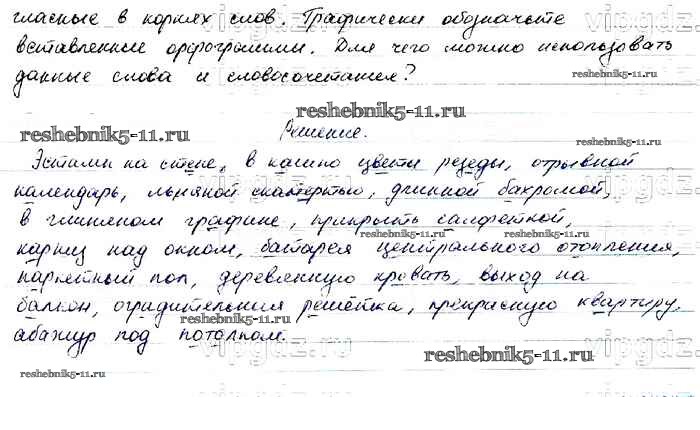 гласные в корнях слов. Графически обозначьте
вставленные орфограммы. Для чего можно использовать
данные слова и словосочетания?
reshebnik5-11.ru
reshebnik5-11.ru
Решение.
Эстамп на стене, в кашпо цвети резеды, отрывной
календарь, льняной скатертью, длинной бахромой,
в глиняном графине, прикрыть салфеткой,
reshebnik5-11.ru
reshebnik5-11.ru
карниз над окном, батарея центрального отопления,
паркетный пол, деревянную кровать, выход на
балкон, оградительная решётка, прекрасную квартиру,
reshebnik5-11.ru
абажур под потолком.
reshebnik5-11.ru
reshebnik5-11.ru
vipgdz.ru